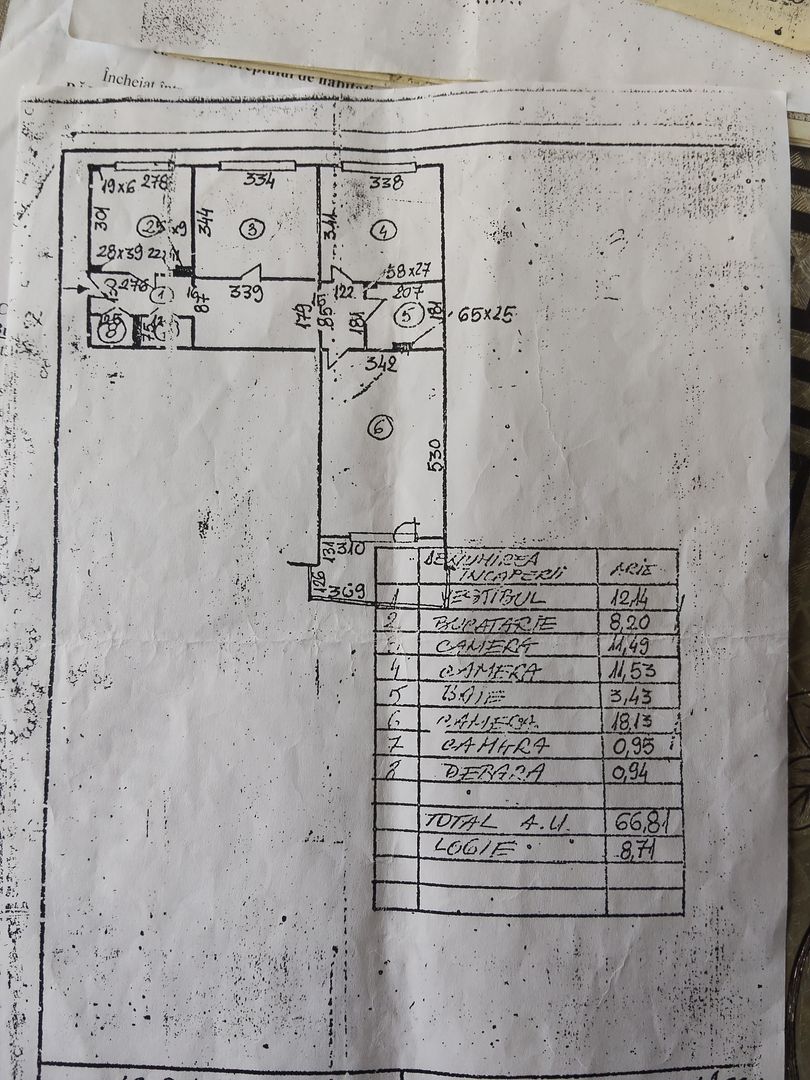 Încheiat
dreptului de
19x6 278
334
338
301
344
3
4
28x39
58x27
278
1
87
339
122
207
179
855
181
5
181
65x25
75
8
342
6
530
131
310
126
369
DENUMIREA
ÎNCAPERII
ARIE
1 VESTIBUL 12,14
2 BUCATARIE 8,20
3 CAMERA 11,49
4 CAMERA 11,53
5 BAIE 3,43
6 CAMERA 18,13
7 CAMARA 0,95
8 DEBARA 0,94
TOTAL A.U. 66,81
LOGIE 8,71